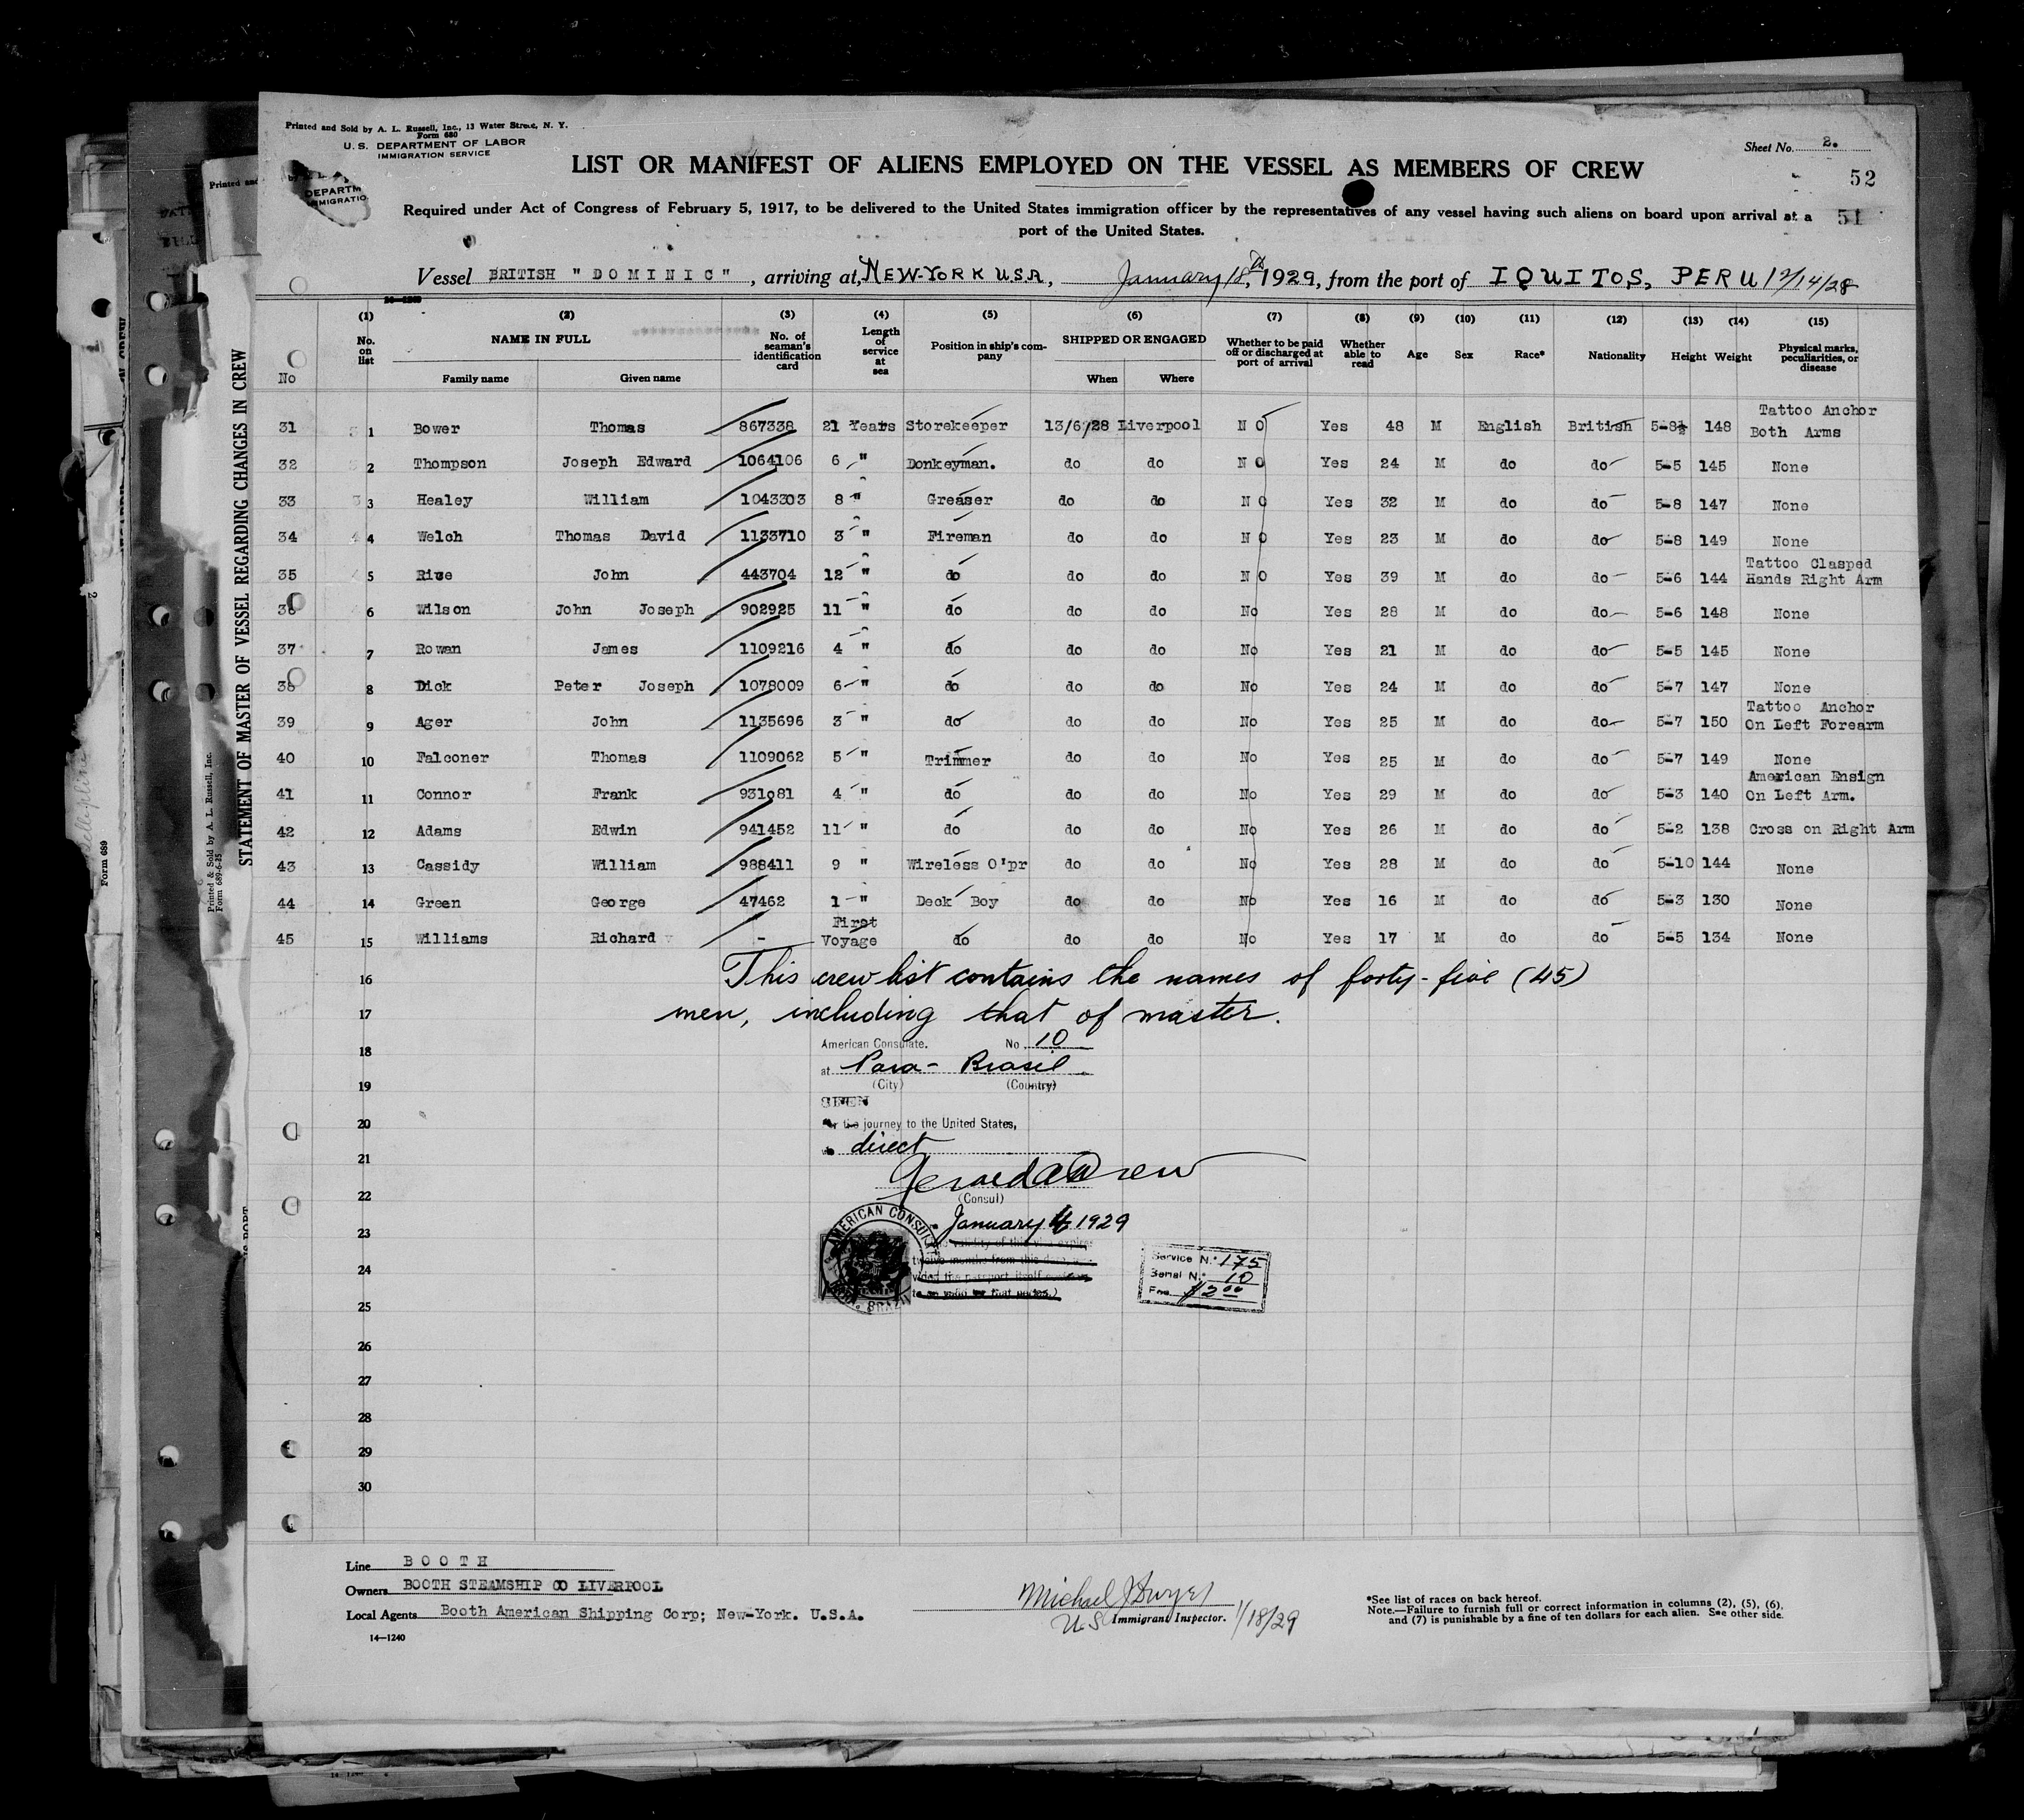 Printed and Sold by A. L. Russell, Inc., 13 Water Street, N. Y.
Form 680
U. S. DEPARTMENT OF LABOR
IMMIGRATION SERVICE
Sheet No. 2.
LIST OR MANIFEST OF ALIENS EMPLOYED ON THE VESSEL AS MEMBERS OF CREW
52
Required under Act of Congress of February 5, 1917, to be delivered to the United States immigration officer by the representatives of any vessel having such aliens on board upon arrival at a
51
port of the United States.
Vessel BRITISH "DOMINIC", arriving at, NEW-YORK U.S.A, January 18th, 1929, from the port of IQUITOS, PERU 12/14/28
(1) (2) (3) (4) (5) (6) (7) (8) (9) (10) (11) (12) (13) (14) (15)
No No. on list NAME IN FULL Family name Given name No. of seaman's identification card Length of service at sea Position in ship's company SHIPPED OR ENGAGED When Where Whether to be paid off or discharged at port of arrival Whether able to read Age Sex Race* Nationality Height Weight Physical marks, peculiarities, or disease
31 1 Bower Thomas 867338 21 Years Storekeeper 13/6/28 Liverpool NO Yes 48 M English British 5-8½ 148 Tattoo Anchor Both Arms
32 2 Thompson Joseph Edward 1064106 6 " Donkeyman. do do NO Yes 24 M do do 5-5 145 None
33 3 Healey William 1043303 8 " Greaser do do NO Yes 32 M do do 5-8 147 None
34 4 Welch Thomas David 1133710 3 " Fireman do do NO Yes 23 M do do 5-8 149 None
35 5 John 443704 12 " do do do NO Yes 39 M do do 5-6 144 Tattoo Clasped Hands Right Arm
36 6 Wilson John Joseph 902925 11 " do do do No Yes 28 M do do 5-6 148 None
37 7 Rowan James 1109216 4 " do do do No Yes 21 M do do 5-5 145 None
38 8 Dick Peter Joseph 1078009 6 " do do do No Yes 24 M do do 5-7 147 None
39 9 Ager John 1135696 3 " do do do No Yes 25 M do do 5-7 150 Tattoo Anchor On Left Forearm
40 10 Falconer Thomas 1109062 5 " Trimmer do do No Yes 25 M do do 5-7 149 None
41 11 Connor Frank 931081 4 " do do do No Yes 29 M do do 5-3 140 American Ensign On Left Arm.
42 12 Adams Edwin 941452 11 " do do do No Yes 26 M do do 5-2 138 Cross on Right Arm
43 13 Cassidy William 988411 9 " Wireless O'pr do do No Yes 28 M do do 5-10 144 None
44 14 Green George 47462 1 " Deck Boy do do No Yes 16 M do do 5-3 130 None
45 15 Williams Richard - First Voyage do do do No Yes 17 M do do 5-5 134 None
16 This crew list contains the names of forty-five (45)
17 men, including that of master.
18 American Consulate. No 10
at Para - Brasil
19 (City) (Country)
SEEN
20 For the journey to the United States,
direct
21
Gerald A Drew
22 (Consul)
January 4 1929
23
24
25
26
27
28
29
30
AMERICAN CONSULATE
BRAZIL
Service No. 175
Serial No. 10
Fee $2.00
Line BOOTH
Owners BOOTH STEAMSHIP CO LIVERPOOL
Local Agents Booth American Shipping Corp; New-York. U.S.A.
14—1240
Michael J Dwyer
U.S. Immigrant Inspector. 1/18/29
*See list of races on back hereof.
Note.—Failure to furnish full or correct information in columns (2), (5), (6),
and (7) is punishable by a fine of ten dollars for each alien. See other side.
STATEMENT OF MASTER OF VESSEL REGARDING CHANGES IN CREW
Printed & Sold by A. L. Russell, Inc.
Form 689-6-25
Form 689